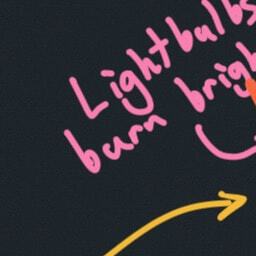 Lightbulbs
burn brigh